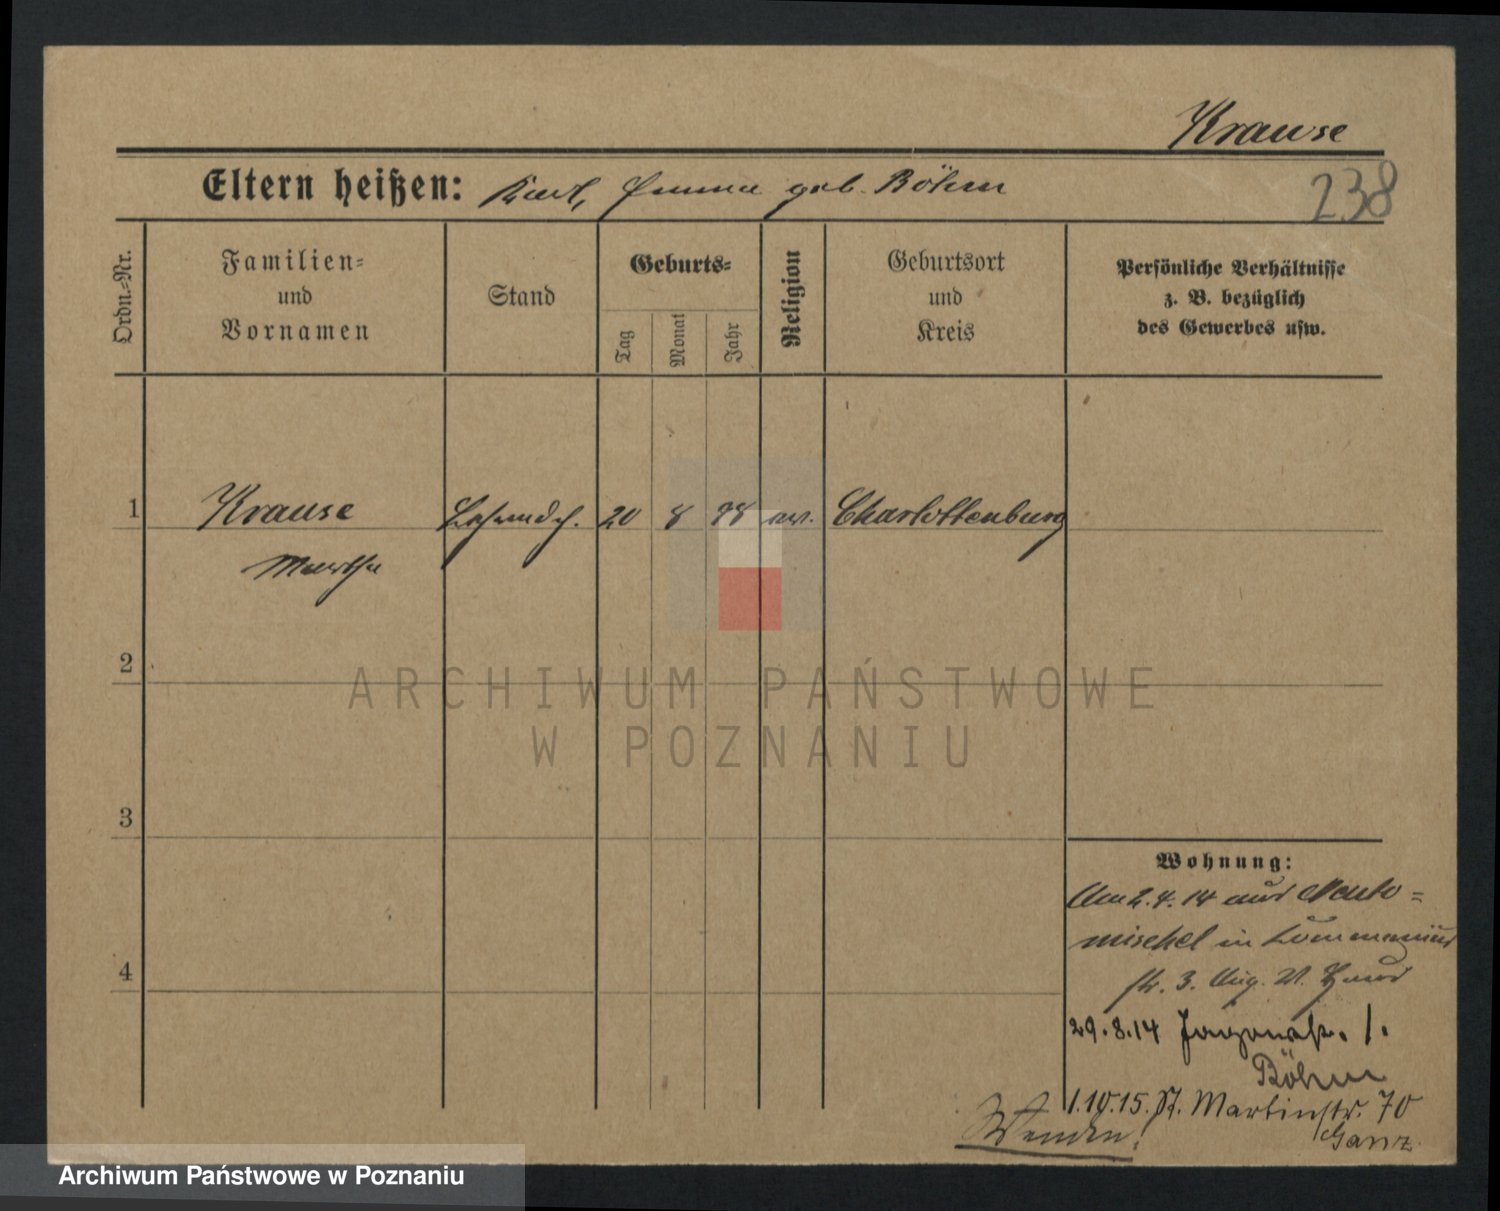 Krause
Eltern heißen: Karl, Emma geb. Böhm
238
Ordn.-Nr.
Familien-
und
Vornamen
Stand
Geburts-
Tag
Monat
Jahr
Religion
Geburtsort
und
Kreis
Persönliche Verhältnisse
z. B. bezüglich
des Gewerbes usw.
1 Krause 20 8 98 ev. Charlottenburg
Martha
2
3
4
ARCHIWUM PAŃSTWOWE
W POZNANIU
Wohnung:
Am 2.4.14 aus Neuto=
mischel in
str. 3. Aug. V. Haus
29.8.14 1.
Böhm
1.10.15. St. Martinstr. 70
Ganz
Wenden!
Archiwum Państwowe w Poznaniu